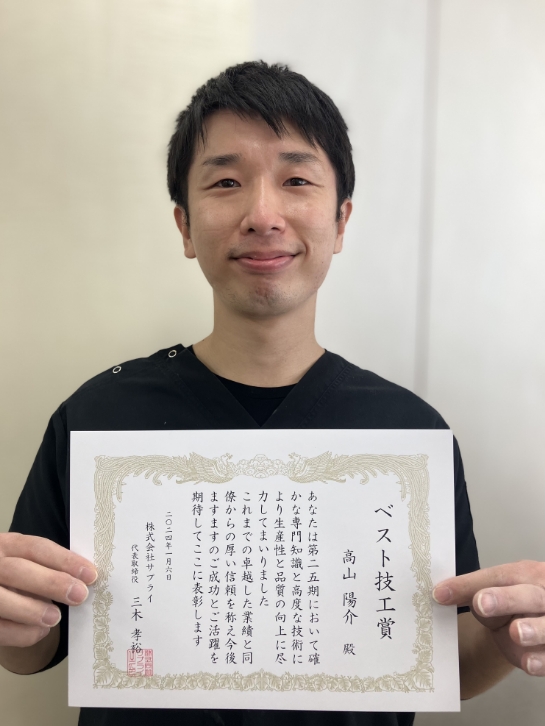 ベスト技工賞
高山 陽介 殿
あなたは第二五期において確
かな専門知識と高度な技術に
より生産性と品質の向上に尽
力してまいりました
これまでの卓越した業績と同
僚からの厚い信頼を称え今後
ますますのご成功とご活躍を
期待してここに表彰します
二〇二四年一月六日
株式会社サプライ
代表取締役 三木 孝裕